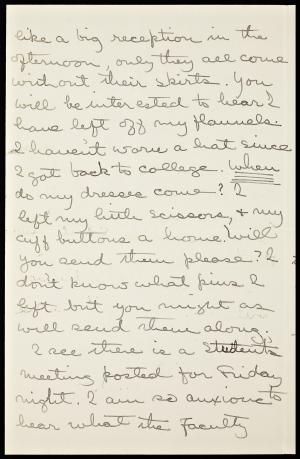 like a big reception in the
afternoon, only they all come
without their skirts. You
will be interested to hear I
have left off my flannels.
I haven't worn a hat since
I got back to college. When
do my dresses come? I
left my little scissors, & my
cuff buttons a home. Will
you send them please? I
don't know what pins I
left but you might as
will send them along.
I see there is a Students
meeting posted for Friday
night. I am so anxious to
hear what the Faculty